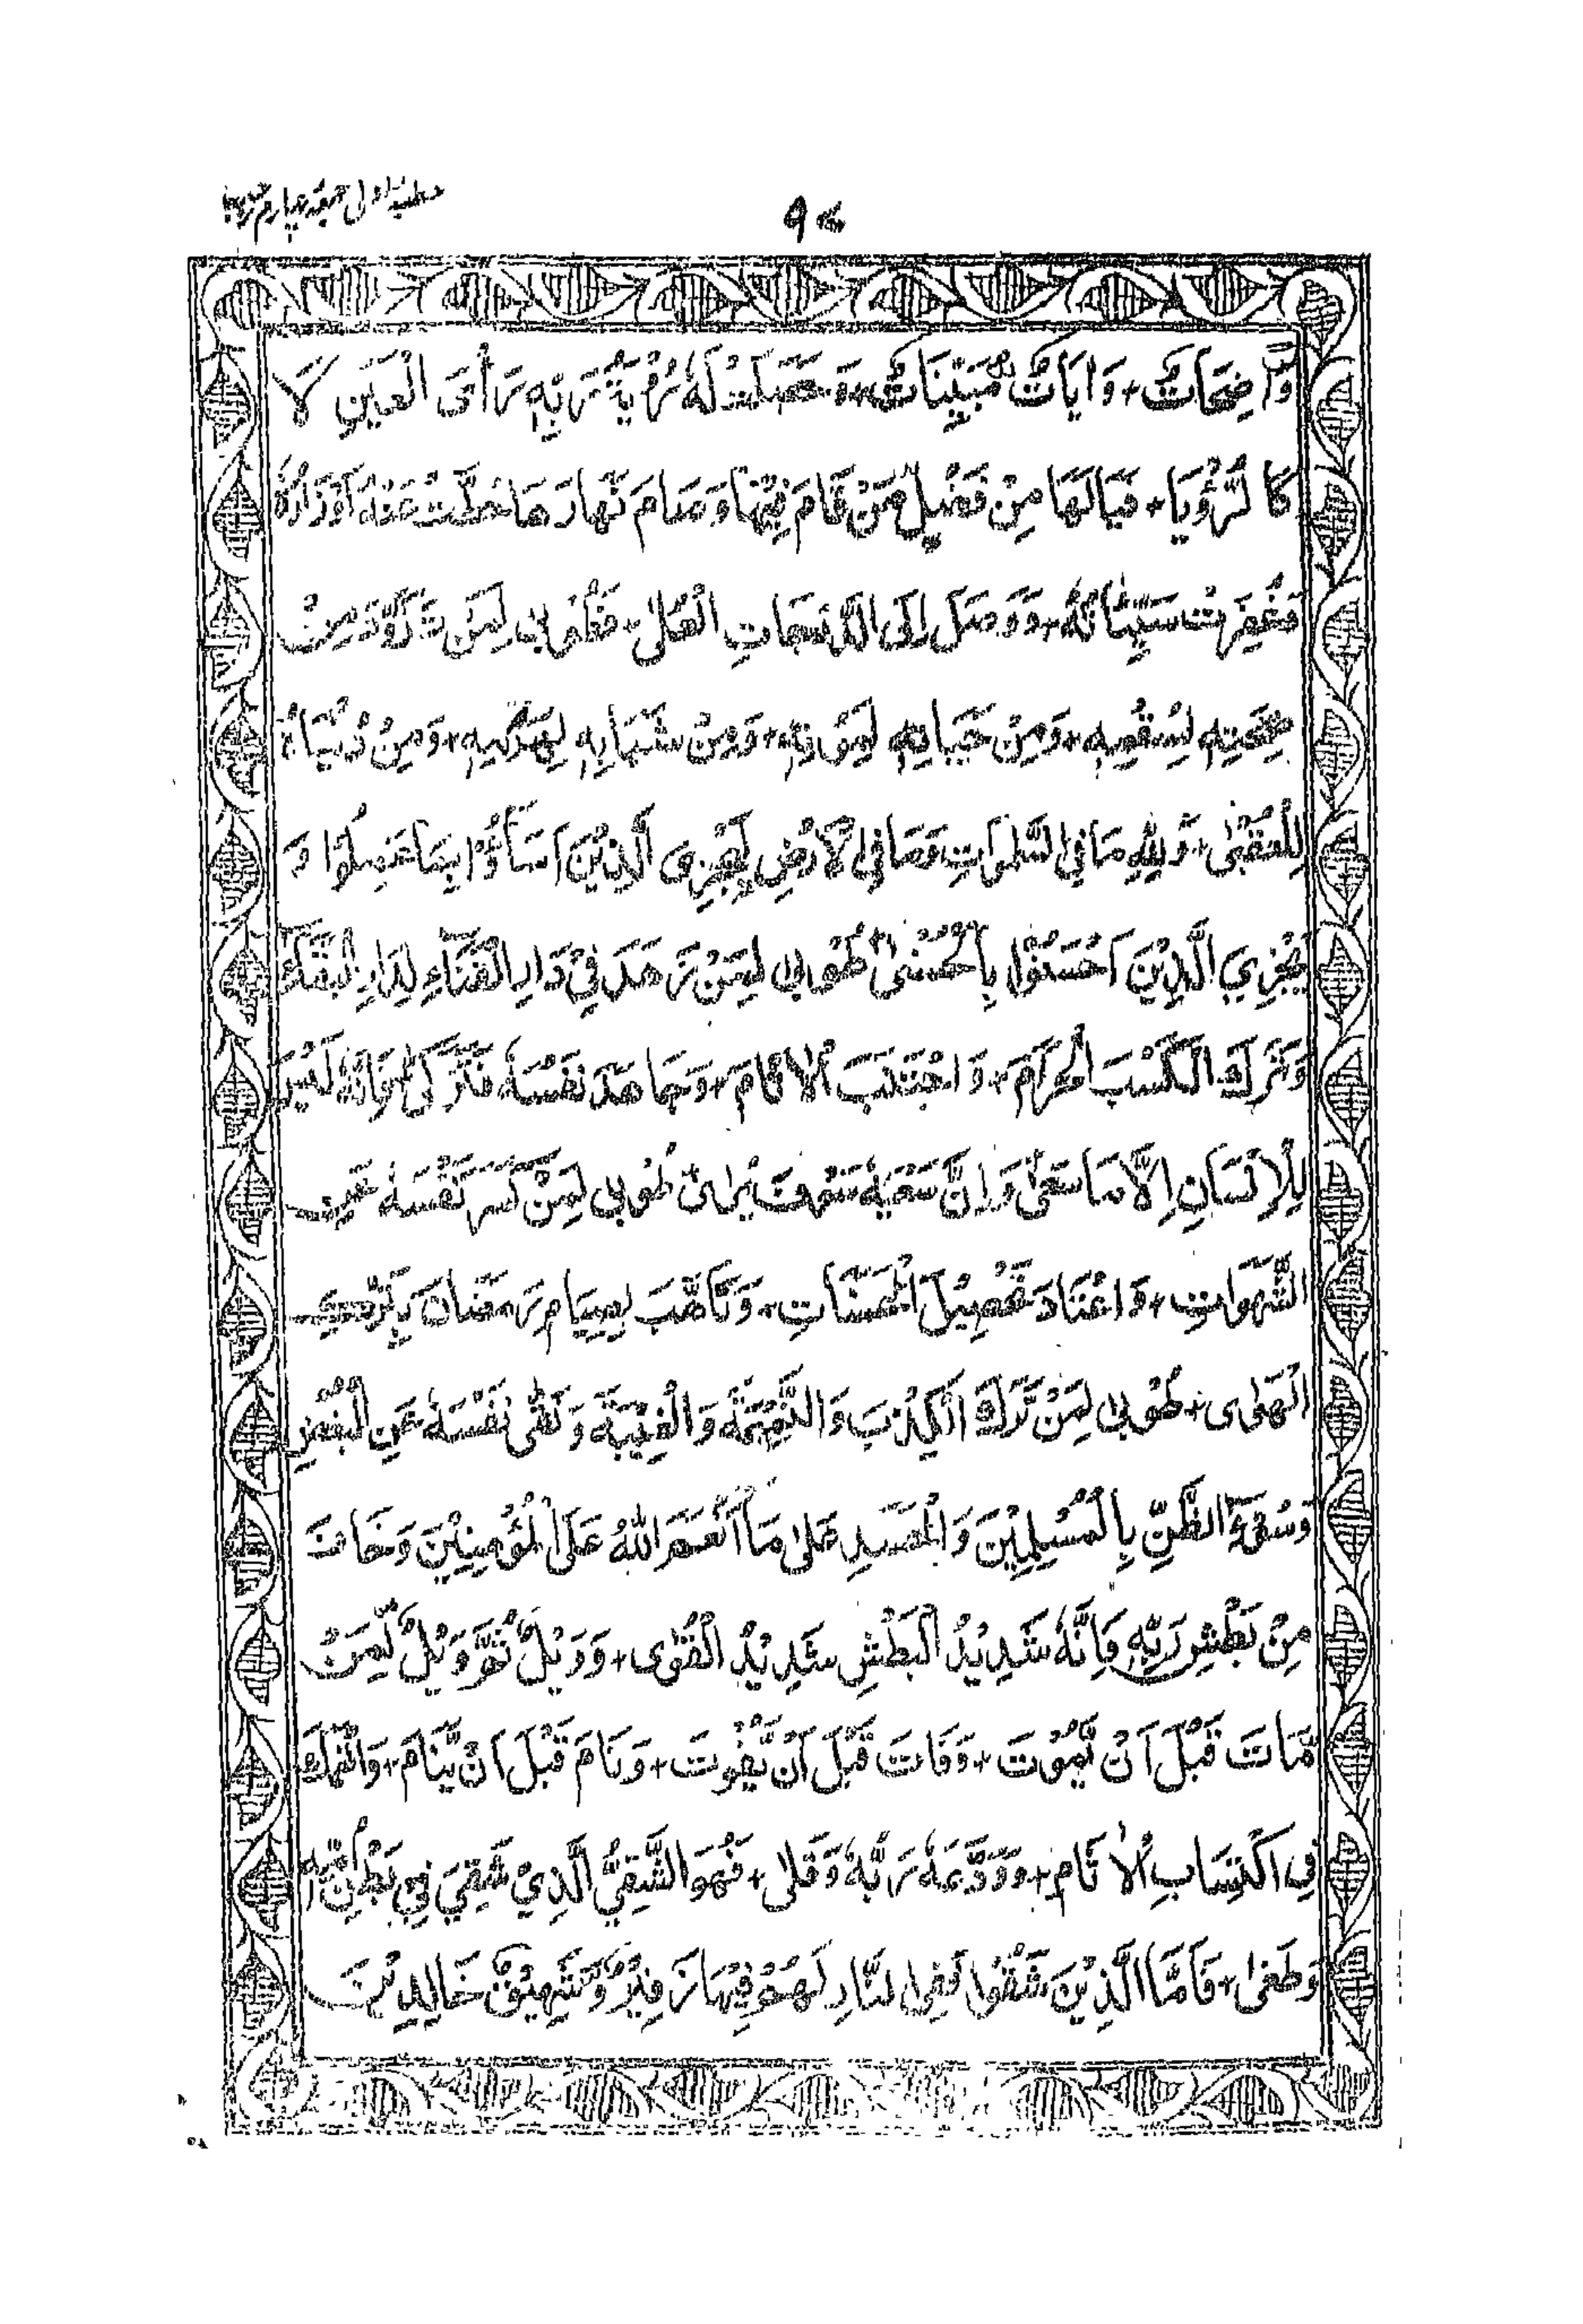 خطبہ اول جمعہ چہارم
وَاضِحَاتٌ + وَاٰيَاتٌ مُّبَيِّنَاتٌ + وَحَصَلَتْ لَهٗ رُؤْيَةُ رَبِّهٖ رَأْىَ الْعَيْنِ لَا
كَالرُّؤْيَا + فَيَالَهَا مِنْ فَضِيْلٍ مَنْ قَامَ فِيْهَا وَصَامَ نَهَارَهَا حُطَّتْ عَنْهُ اَوْزَارُهٗ
وَغُفِرَتْ سَيِّئَاتُهٗ + وَوَصَلَ اِلَى الدَّرَجَاتِ الْعُلٰى + فَطُوْبٰى لِمَنْ تَزَوَّدَ مِنْ
صِحَّتِهٖ لِسُقْمِهٖ + وَمِنْ حَيَاتِهٖ لِمَوْتِهٖ + وَمِنْ شَبَابِهٖ لِهَرَمِهٖ + وَمِنْ دُنْيَاهُ
لِلْعُقْبٰى + وَلِلّٰهِ مَا فِى السَّمٰوَاتِ وَمَا فِى الْاَرْضِ لِيَجْزِىَ الَّذِيْنَ اَسَآءُوْا بِمَا عَمِلُوْا وَ
يَجْزِيَ الَّذِيْنَ اَحْسَنُوْا بِالْحُسْنٰى طُوْبٰى لِمَنْ زَهَدَ فِيْ دَارِ الْفَنَآءِ لِدَارِ الْبَقَآءِ
وَتَرَكَ الْكَسْبَ الْحَرَامَ + وَاجْتَنَبَ الْاٰثَامَ + وَجَاهَدَ نَفْسَهٗ فَتَزَكّٰى وَاَنْ لَيْسَ
لِلْاِنْسَانِ اِلَّا مَا سَعٰى وَاَنَّ سَعْيَهٗ سَوْفَ يُرٰى طُوْبٰى لِمَنْ نَفْسَهٗ عَنِ
الشَّهَوَاتِ + وَاعْتَادَ تَحْصِيْلَ الْحَسَنَاتِ + وَتَاَهَّبَ لِصِيَامِ رَمَضَانَ بِزِيِّ
الْهُدٰى + طُوْبٰى لِمَنْ تَرَكَ الْكِذْبَ وَالنَّمِيْمَةَ وَالْغِيْبَةَ وَنَقّٰى نَفْسَهٗ عَنِ الْبُغْضِ
وَسُوْٓءِ الظَّنِّ بِالْمُسْلِمِيْنَ وَالْحَسَدِ عَلٰى مَا اَنْعَمَ اللّٰهُ عَلَى الْمُؤْمِنِيْنَ وَخَافَ
مِنْ بَطْشِ رَبِّهٖ فَاِنَّهٗ شَدِيْدُ الْبَطْشِ شَدِيْدُ الْقُوٰى + وَوَيْلٌ ثُمَّ وَيْلٌ لِّمَنْ
مَّاتَ قَبْلَ اَنْ يَّمُوْتَ + وَفَاتَ قَبْلَ اَنْ يَّفُوْتَ + وَنَامَ قَبْلَ اَنْ يَّنَامَ + وَانْهَمَكَ
فِى اكْتِسَابِ الْاٰثَامِ + وَوَدَّعَهٗ رَبُّهٗ وَقَلٰى + فَهُوَ الشَّقِيُّ الَّذِيْ شَقِيَ فِيْ بَطْنِ اُمِّهٖ
وَطَغٰى + فَاَمَّا الَّذِيْنَ شَقُوْا فَفِى النَّارِ لَهُمْ فِيْهَا زَفِيْرٌ وَّشَهِيْقٌ خَالِدِيْنَ